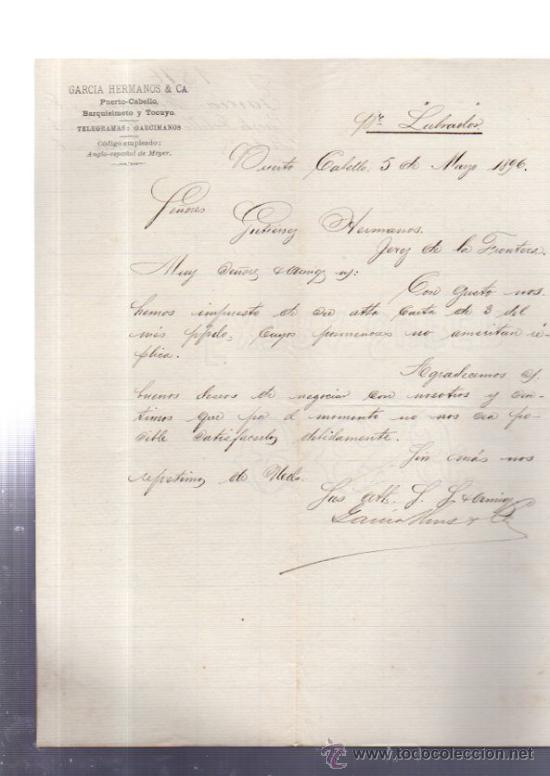 GARCIA HERMANOS & CA.
Puerto-Cabello,
Barquisimeto y Tocuyo.
TELEGRAMAS: GARCIMANOS
Código empleado:
Anglo-español de Meyer.
Puerto Cabello, 5 de Marzo 1896.
Señores
Gutierrez Hermanos.
Jerez de la Frontera.
Muy Señores
Con gusto nos
hemos impuesto de su atta Carta de 3 del
mes ppdo, cuyos pormenores no ameritan ré-
plica.
Agradecemos
buenos deseos de negociar con nosotros y sen-
timos que por el momento no nos sea po-
sible satisfacerlos debidamente.
Sin más nos
repetimos de Uds.
Sus att. S. S.
García Hnos & Ca
todocoleccion
www.todocoleccion.net